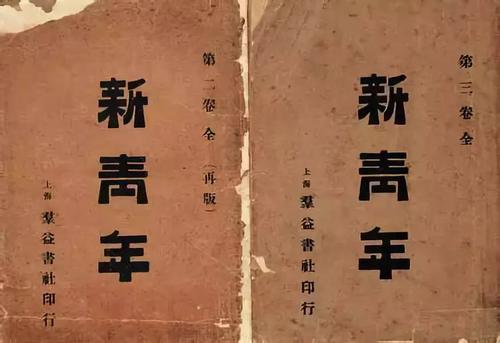 第二卷全（再版）
新青年
上海 羣益書社印行
第三卷全
新青年
上海 羣益書社印行